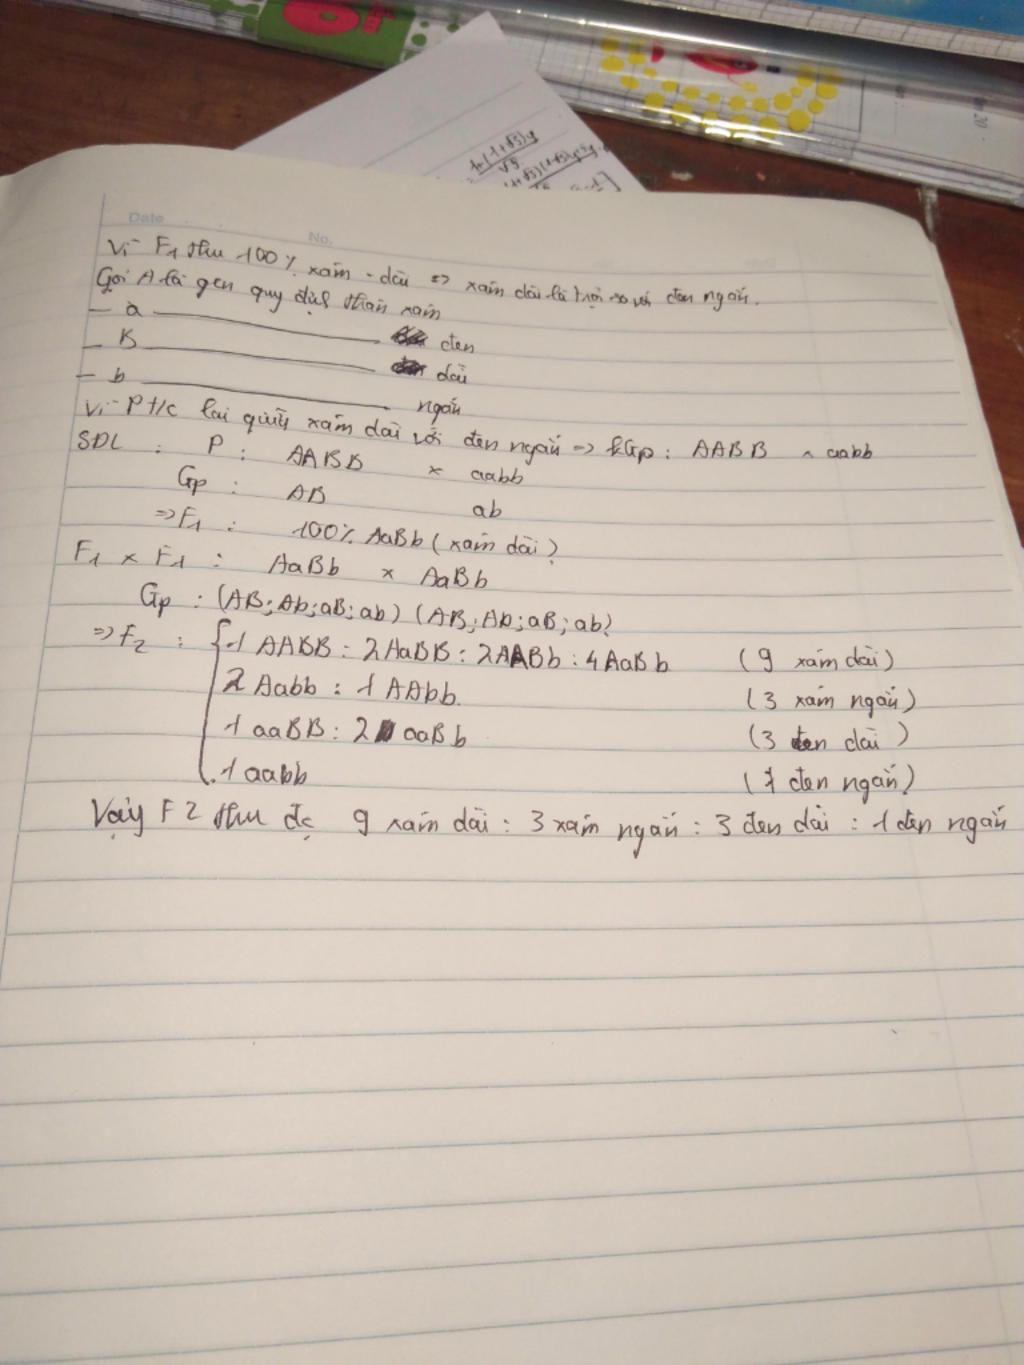 Date
No.
Vì F1 thu 100% xám - dài => xám dài là trội so với đen ngắn.
Gọi A là gen quy định thân xám
- a ———— đen
- B ———— dài
- b ———— ngắn
Vì P t/c lai giữa xám dài với đen ngắn => kGp: AABB × aabb
SĐL : P : AABB × aabb
Gp : AB ab
=> F1 : 100% AaBb (xám dài)
F1 × F1 : AaBb × AaBb
Gp : (AB; Ab; aB; ab) (AB; Ab; aB; ab)
=> F2 : 1 AABB : 2AaBB : 2AABb : 4AaBb (9 xám dài)
2 Aabb : 1 AAbb. (3 xám ngắn)
1 aaBB : 2 aaBb (3 đen dài)
1 aabb (1 đen ngắn)
Vậy F2 thu đc 9 xám dài : 3 xám ngắn : 3 đen dài : 1 đen ngắn